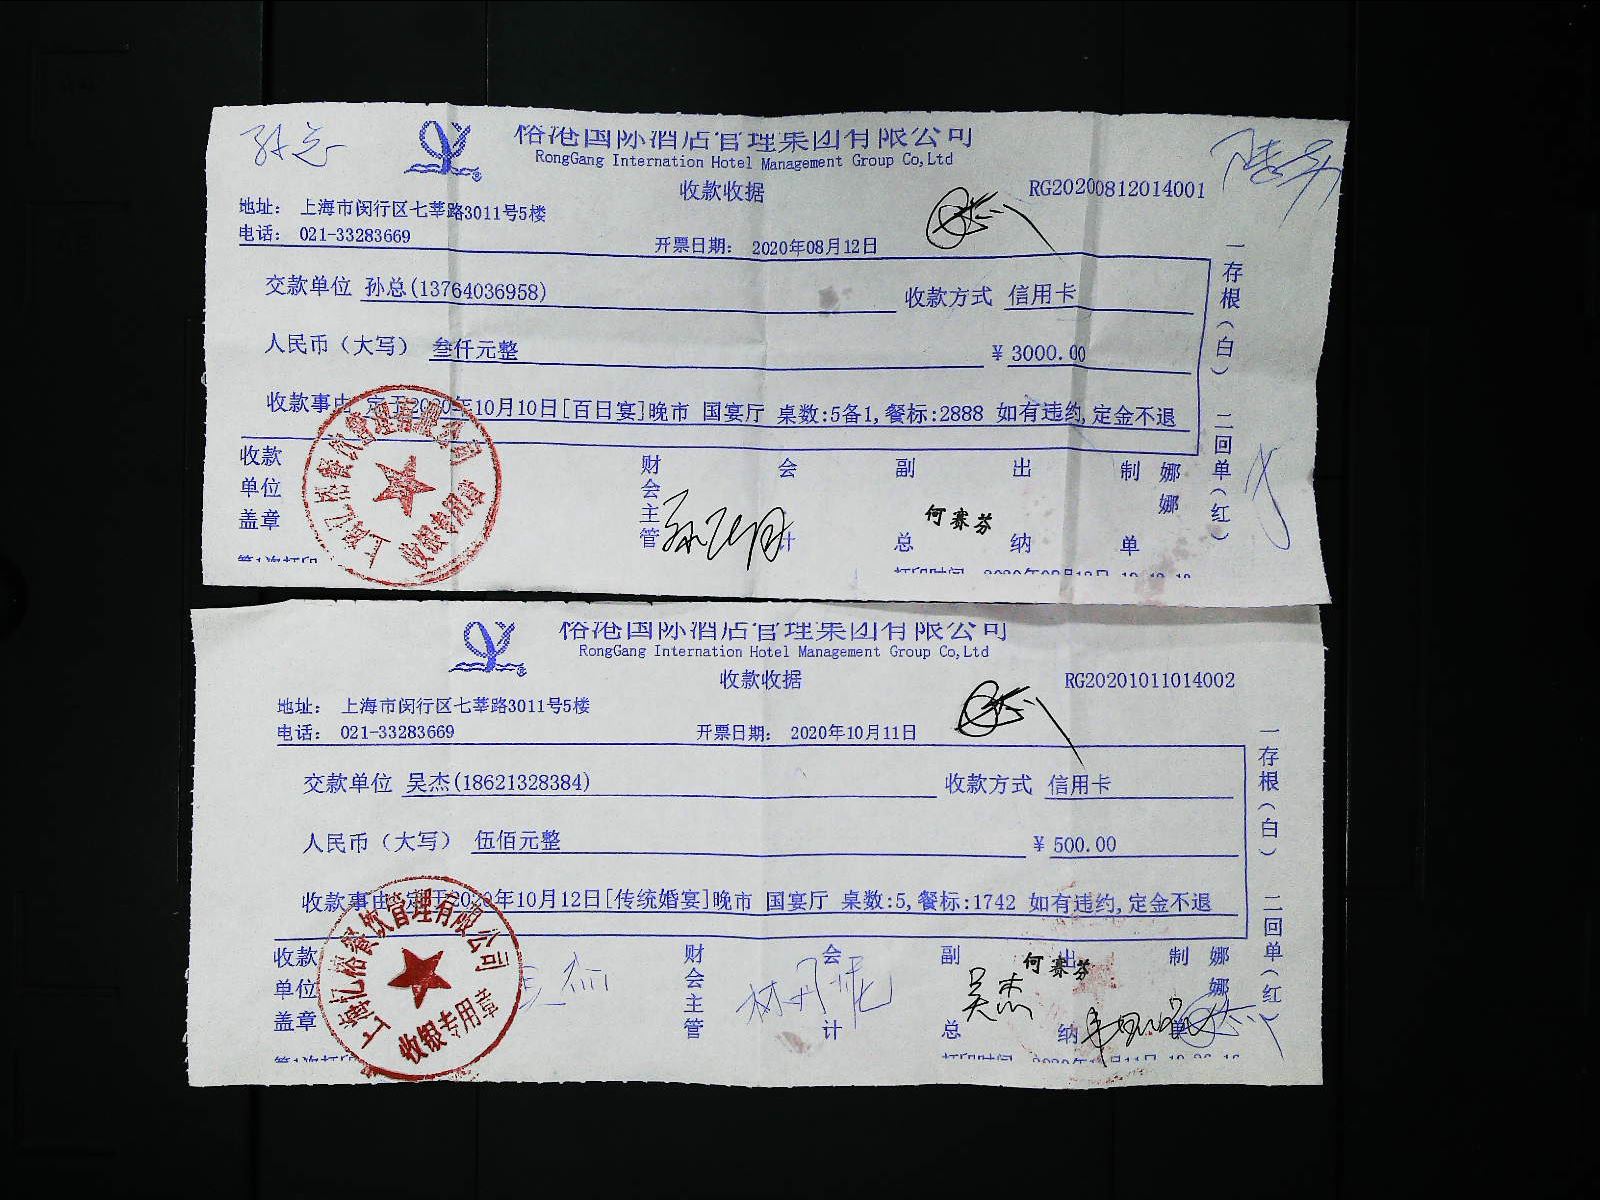 孙总
榕港国际酒店管理集团有限公司
RongGang Internation Hotel Management Group Co,Ltd
收款收据
RG20200812014001
地址： 上海市闵行区七莘路3011号5楼
电话： 021-33283669
开票日期： 2020年08月12日
交款单位 孙总(13764036958)
收款方式 信用卡
人民币（大写） 叁仟元整
¥ 3000.00
收款事由 定于2020年10月10日[百日宴]晚市 国宴厅 桌数:5备1,餐标:2888 如有违约,定金不退
一存根(白) 二回单(红)
收款单位盖章
财会主管
会计
副总
何赛芬
出纳
制单
娜娜
上海忆榕餐饮管理有限公司
收银专用章
第1次打印
打印时间
榕港国际酒店管理集团有限公司
RongGang Internation Hotel Management Group Co,Ltd
收款收据
RG20201011014002
地址： 上海市闵行区七莘路3011号5楼
电话： 021-33283669
开票日期： 2020年10月11日
交款单位 吴杰(18621328384)
收款方式 信用卡
人民币（大写） 伍佰元整
¥ 500.00
收款事由 定于2020年10月12日[传统婚宴]晚市 国宴厅 桌数:5,餐标:1742 如有违约,定金不退
一存根(白) 二回单(红)
收款单位盖章
财会主管
会计
副总
吴杰
何赛芬
出纳
制单
娜娜
上海忆榕餐饮管理有限公司
收银专用章
第1次打印
打印时间